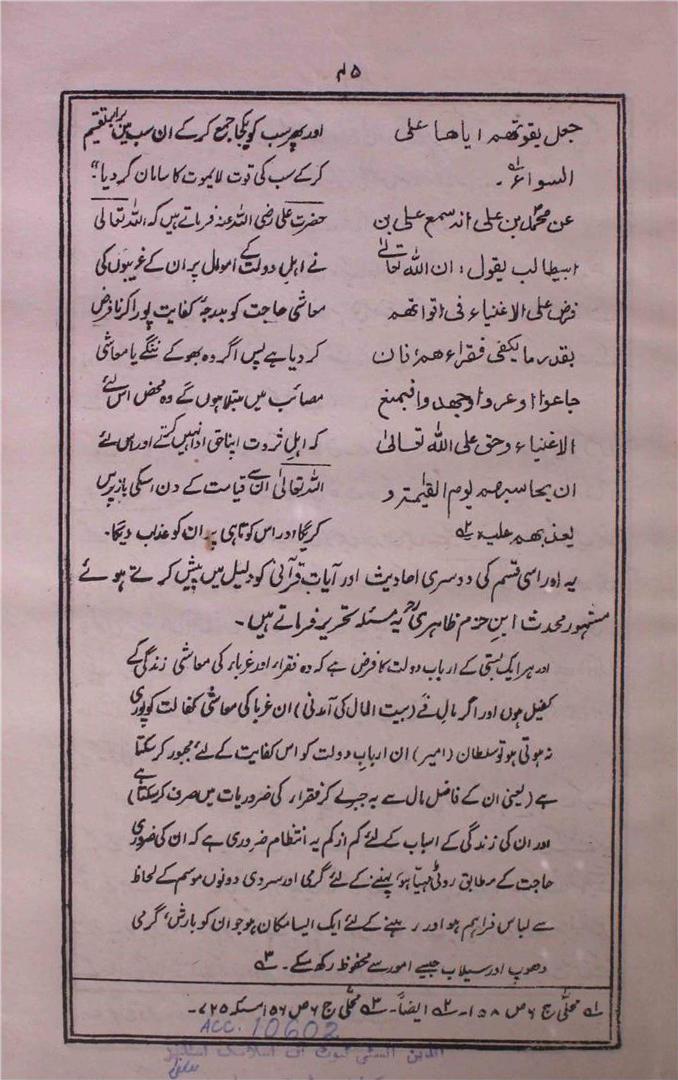 ۴۵
جعل یقوتھم ایاھا علی
السواء لہ۔
اور پھر سب کو یکجا جمع کرکے ان سب میں برابر تقیم
کرکے سب کی قوت لایموت کا سامان کردیا"
عن محمد بن علی انہ سمع علی بن
ابیطالب یقول: ان اللہ تعالیٰ
فرض علی الاغنیاء فی اقواتھم
بقدر ما یکفی فقراءھم فان
جاعوا او عروا وجھدوا فبمنع
الاغنیاء وحق علی اللہ تعالیٰ
ان یحاسبھم یوم القیٰمۃ و
یعذبھم علیہ ۲ہ
حضرت علی رضی اللہ عنہ فرماتے ہیں کہ اللہ تعالیٰ
نے اہل دولت کے اموال پر ان کے غریبوں کی
معاشی حاجت کو بدرجۂ کفایت پورا کرنا فرض
کردیا ہے پس اگر وہ بھوکے ننگے یا معاشی
مصائب میں مبتلا ہوں گے وہ محض اس لئے
کہ اہل ثروت اپنا حق ادا نہیں کتے اور اس لئے
اللہ تعالیٰ ان سے قیامت کے دن اسکی باز پرس
کریگا اور اس کوتاہی پر ان کو عذاب دیگا۔
یہ اور اسی قسم کی دوسری احادیث اور آیات قرآنی کو دلیل میں پیش کرتے ہوئے
مشہور محدث ابن حزم ظاہریؒ یہ مسئلہ تحریر فرماتے ہیں۔
اور ہر ایک بستی کے ارباب دولت کا فرض ہے کہ وہ فقراء اور غرباء کی معاشی زندگی کے
کفیل ہوں اور اگر مال فے (بیت المال کی آمدنی) ان غربا کی معاشی کفالت کو پوری
نہ ہوتی ہو تو سلطان (امیر) ان ارباب دولت کو اس کفایت کے لئے مجبور کرسکتا
ہے (یعنی ان کے فاضل مال سے بہ جبر لے کر فقراء کی ضروریات میں صرف کرسکتا ہے)
اور ان کی زندگی کے اسباب کے لئے کم از کم یہ انتظام ضروری ہے کہ ان کی ضروری
حاجت کے مطابق روٹی مہیا ہو، پہننے کے لئے گرمی اور سردی دونوں موسم کے لحاظ
سے لباس فراہم ہو اور رہنے کے لئے ایک ایسا مکان ہو جو ان کو بارش، گرمی
دھوپ اور سیلاب جیسے امور سے محفوظ رکھ سکے۔ ۳ہ
۱ہ محلّٰی ج ۶ ص ۱۵۸۔ ۲ہ ایضاً۔ ۳ہ محلّٰی ج ۶ ص ۱۵۶ مسئلہ ۷۲۵۔
ACC. 10602